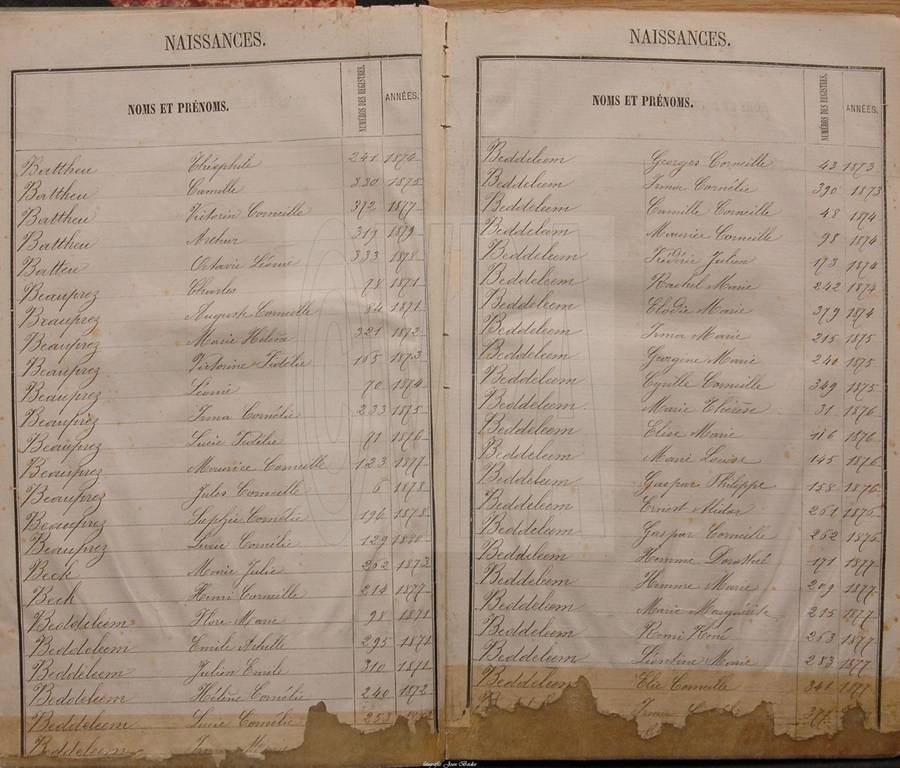 NAISSANCES.
NOMS ET PRÉNOMS. NUMÉROS DES REGISTRES. ANNÉES.
Battheu Théophile 241 1874
Battheu Camille 330 1875
Battheu Victorin Corneille 372 1877
Battheu Arthur 319 1879
Batteu Octavie Léonie 333 1878
Beauprez Charles 78 1871
Beauprez Auguste Corneille 84 1871
Beauprez Marie Helena 321 1872
Beauprez Victorine Fidélie 165 1873
Beauprez Léonie 70 1874
Beauprez Irma Cornélie 233 1875
Beauprez Lucie Fidélie 71 1876
Beauprez Maurice Corneille 123 1877
Beauprez Jules Corneille 6 1878
Beauprez Sophie Cornélie 196 1878
Beauprez Lucie Cornélie 129 1880
Beck Marie Julie 262 1872
Beck Henri Corneille 214 1877
Beddeleem Flore Marie 98 1871
Beddeleem Emile Achille 295 1871
Beddeleem Julien Emile 310 1871
Beddeleem Hélène Cornélie 240 1872
Beddeleem Lucie Cornélie 253
Beddeleem Irma Marie
NAISSANCES.
NOMS ET PRÉNOMS. NUMÉROS DES REGISTRES. ANNÉES.
Beddeleem Georges Corneille 43 1873
Beddeleem Irma Cornélie 390 1873
Beddeleem Camille Corneille 48 1874
Beddeleem Maurice Corneille 98 1874
Beddeleem Fréderic Julien 173 1874
Beddeleem Rachel Marie 242 1874
Beddeleem Elodie Marie 379 1874
Beddeleem Irma Marie 215 1875
Beddeleem Georgine Marie 240 1875
Beddeleem Cyrille Corneille 349 1875
Beddeleem Marie Thérèse 31 1876
Beddeleem Elise Marie 116 1876
Beddeleem Marie Louise 145 1876
Beddeleem Gaspar Philippe 158 1876
Beddeleem Ernest Médar 251 1876
Beddeleem Gaspar Corneille 262 1876
Beddeleem Hemme Dorothée 171 1877
Beddeleem Hemme Marie 209 1877
Beddeleem Marie Marguérite 215 1877
Beddeleem Remi René 263 1877
Beddeleem Léontine Marie 283 1877
Beddeleem Elie Corneille 341 1877
Irma 371
fotografie Joan Becke